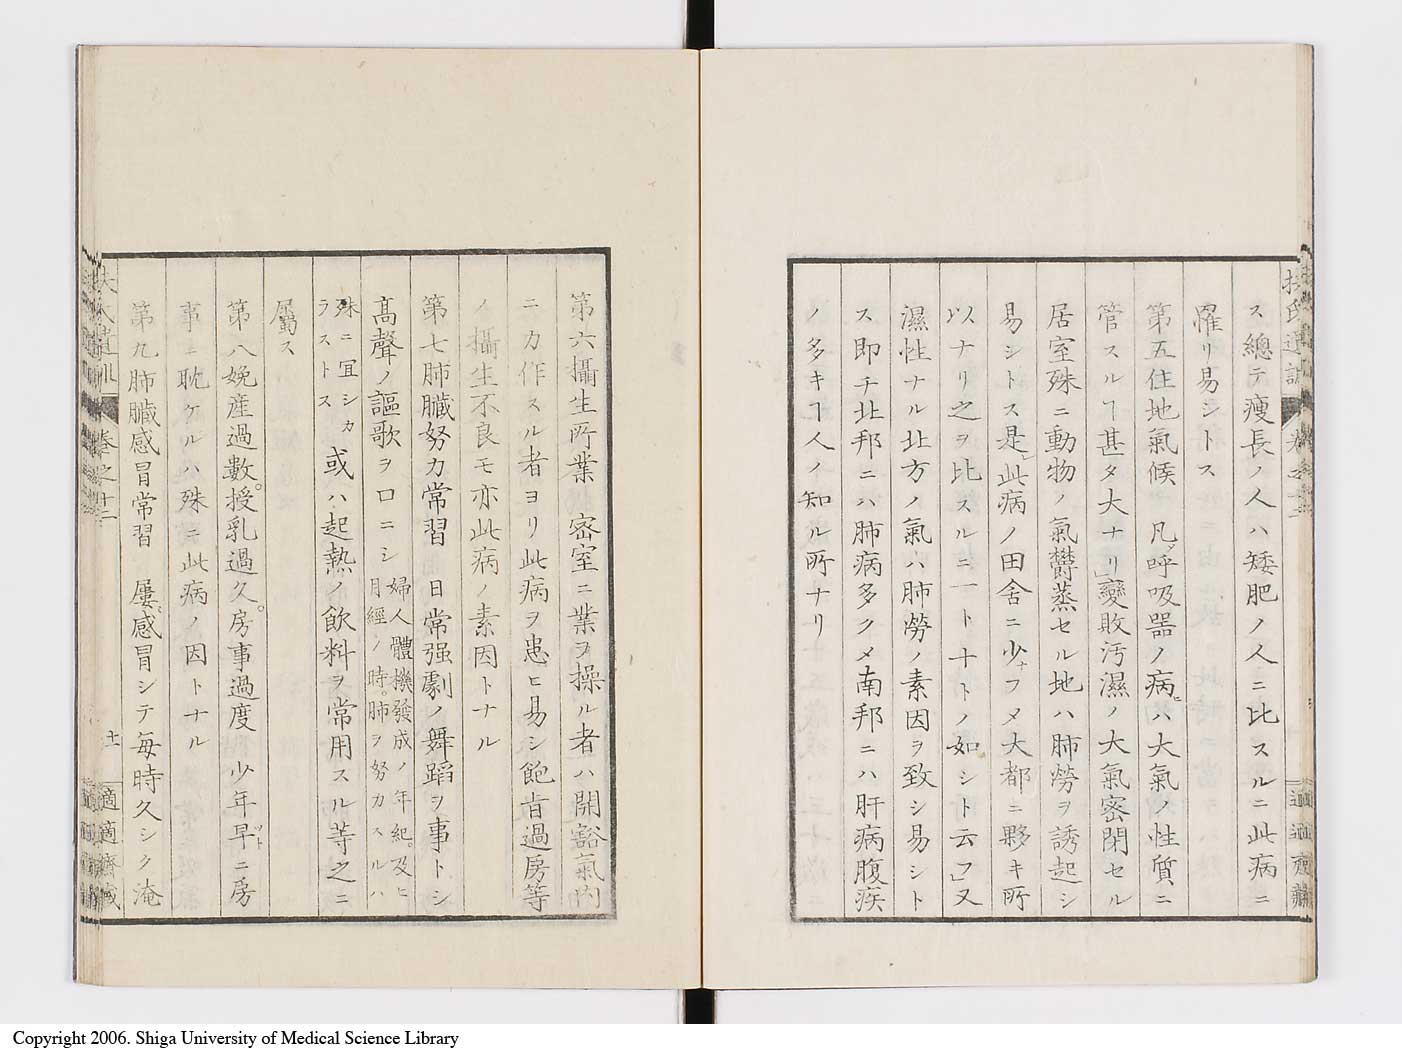 ス總テ瘦長ノ人ハ矮肥ノ人ニ比スルニ此病ニ
罹リ易シトス
第五住地氣候 凡ソ呼吸器ノ病ハ大氣ノ性質ニ
管スルヿ甚タ大ナリ變敗汚濕ノ大氣密閉セル
居室殊ニ動物ノ氣欝蒸セル地ハ肺勞ヲ誘起シ
易シトス是レ此病ノ田舍ニ少ナフメ大都ニ夥キ所
以ナリ之ヲ比スルニ一ト十トノ如シト云フ又
濕性ナル北方ノ氣ハ肺勞ノ素因ヲ致シ易シト
ス即チ北邦ニハ肺病多クメ南邦ニハ肝病腹疾
ノ多キヿ人ノ知ル所ナリ
扶氏遺訓 卷之十二
適適齋藏
第六攝生所業 密室ニ業ヲ操ル者ハ開豁氣内
ニカ作スル者ヨリ此病ヲ患ヒ易シ飽食過房等
ノ攝生不良モ亦此病ノ素因トナル
第七肺臟努力常習 日常强劇ノ舞蹈ヲ事トシ
高聲ノ謳歌ヲ口ニシ 婦人體機發成ノ年紀。及ヒ
月經ノ時。肺ヲ努力スルハ
殊ニ冝シカ
ラストス 或ハ起熱ノ飮料ヲ常用スル等之ニ
屬ス
第八娩産過數。授乳過久。房事過度 少年早ツトニ房
事ニ耽ケルハ殊ニ此病ノ因トナル
第九肺臟感冒常習 屢感冒シテ每時久シク淹
扶氏遺訓 卷之十二
十一
適適齋藏
Copyright 2006. Shiga University of Medical Science Library